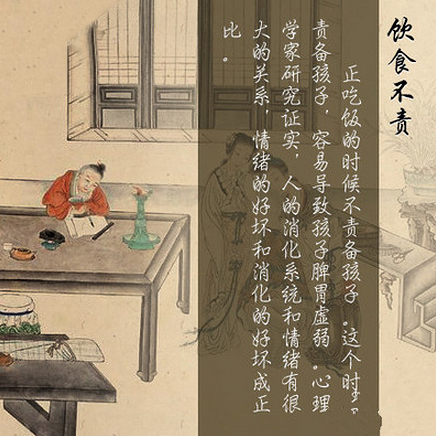 饮食不责
正吃饭的时候不责备孩子。这个时候
责备孩子，容易导致孩子脾胃虚弱。心理
学家研究证实，人的消化系统和情绪有很
大的关系，情绪的好坏和消化的好坏成正
比。